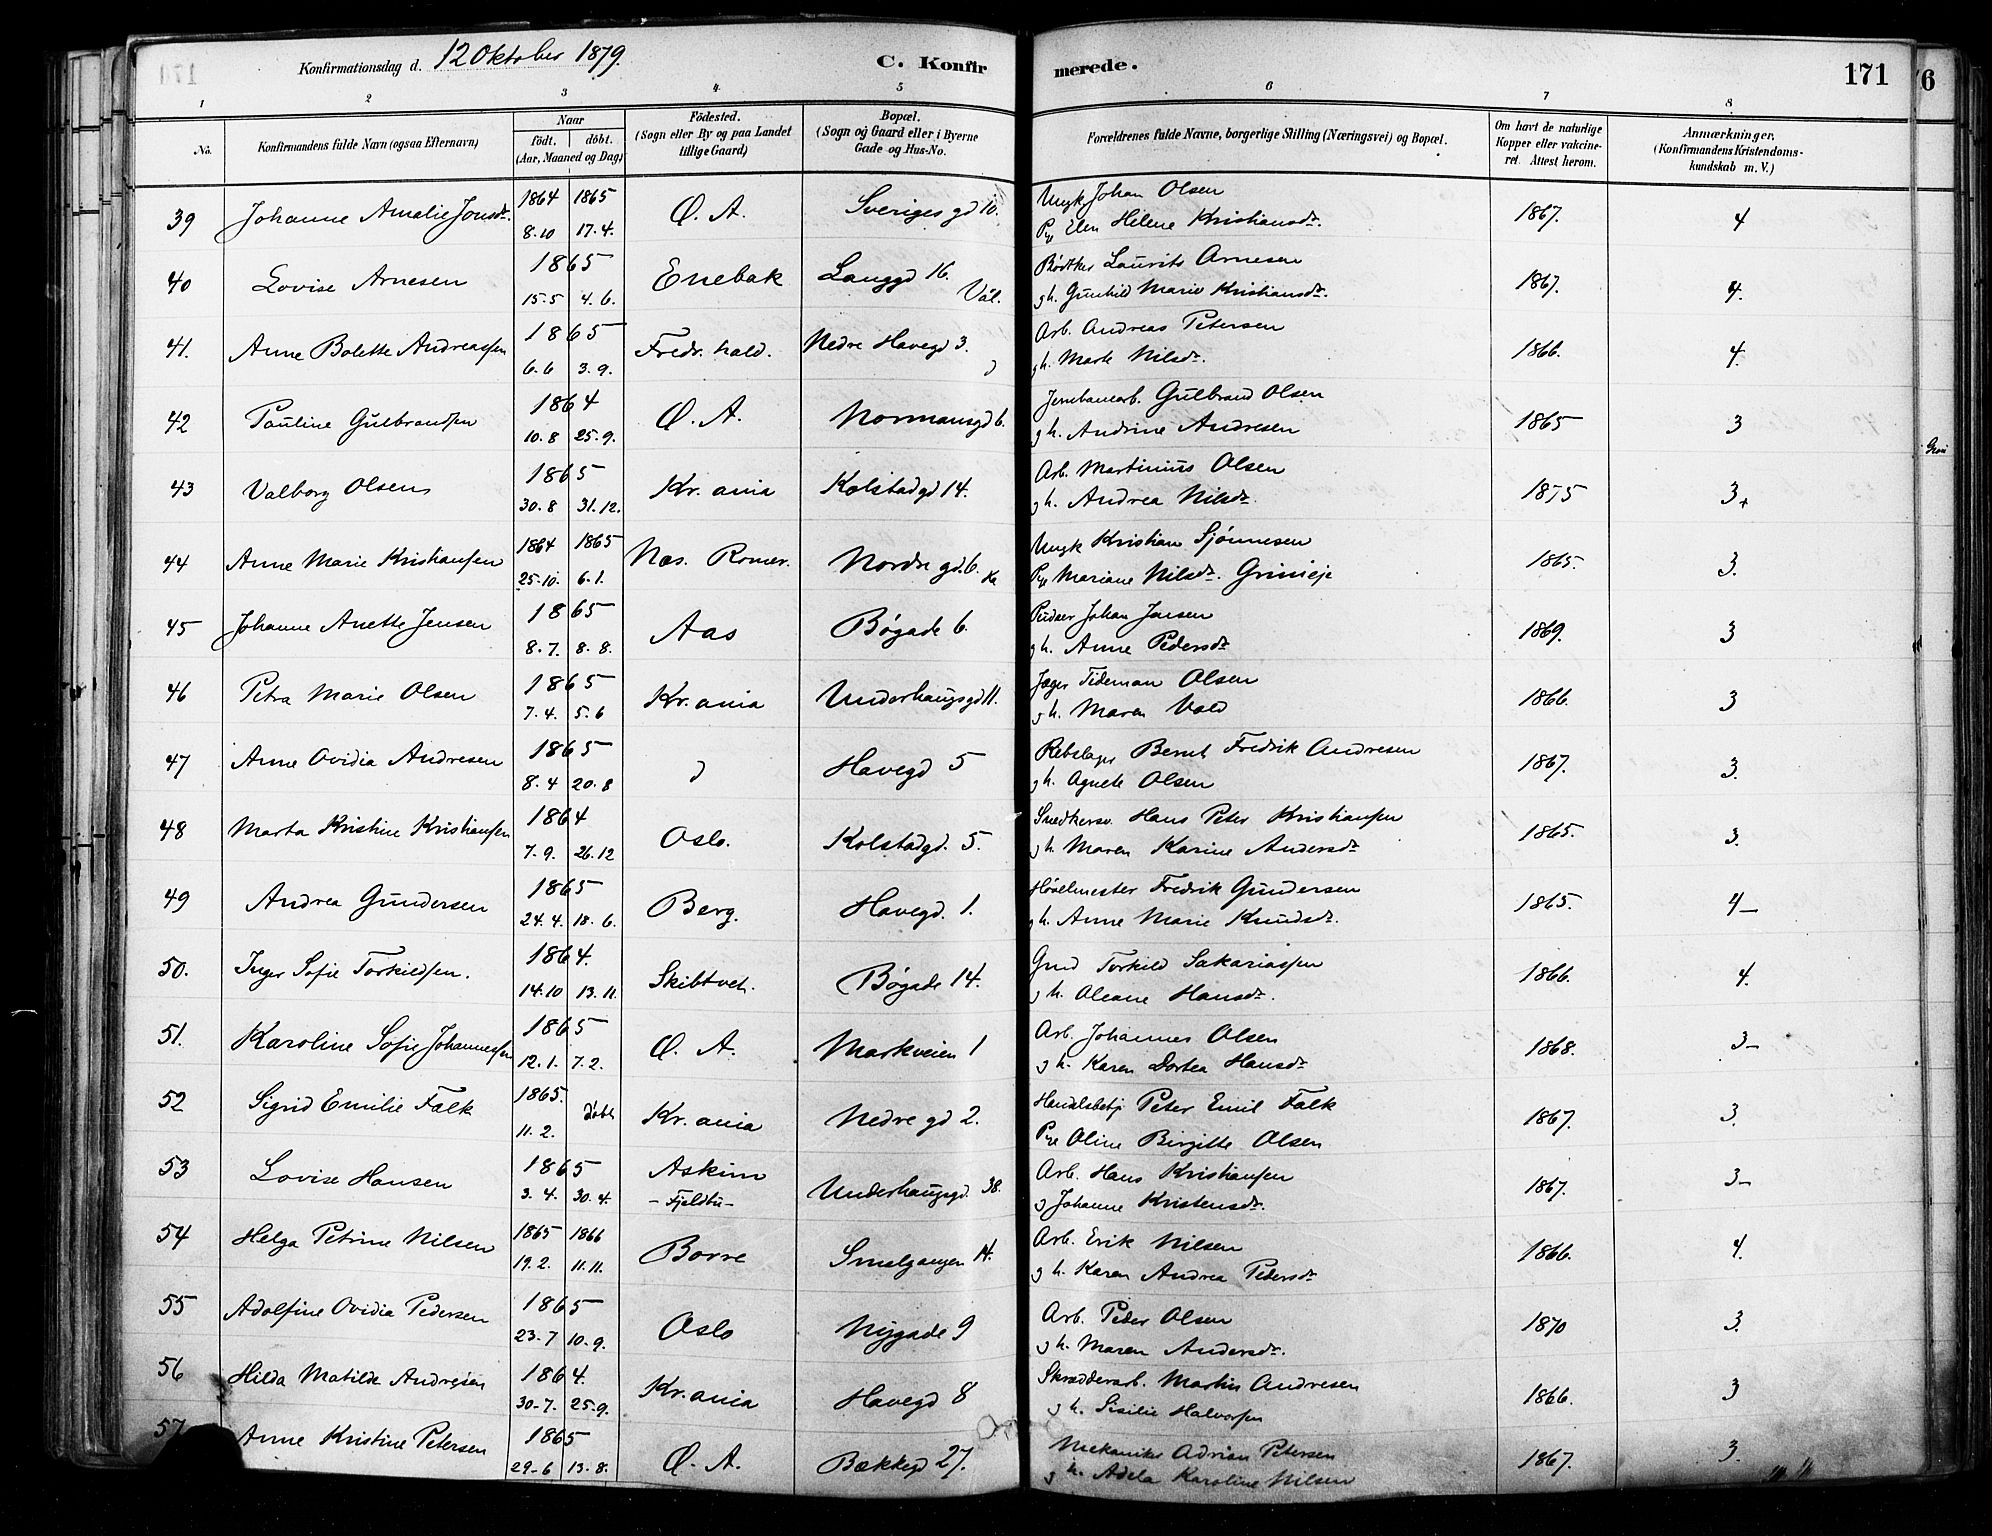 Konfirmationsdag d. 12 Oktober 1879.
C. Konfir
merede.
171
1 2 3 4 5 6 7 8
No. Konfirmandens fulde Navn (ogsaa Efternavn) Naar født, døbt. (Aar, Maaned og Dag) Födested. (Sogn eller By og paa Landet tillige Gaard) Bopæl. (Sogn og Gaard eller i Byerne Gade og Hus-No. Forældrenes fulde Navne, borgerlige Stilling (Næringsvei) og Bopæl. Om havt de naturlige Kopper eller vakcineret. Attest herom. Anmærkninger. (Konfirmandens Kristendomskundskab m. V.)
39 Johanne Amalie Jonsdr. 1864 1865 8.10 17.4. Ø. A. Sveriges gd 10. Ungk Johan Olsen 1867. 4
Pge Elen Helene Kristiansdr.
40 Lovise Arnesen 1865 15.5 4.6. Enebak Langgd 16. Vål. Bødtker Laurits Arnesen 1867. 4.
g h. Gunhild Marie Kristiansdr.
41. Anne Bolette Andreassen 1865 6.6 3.9. Fredr. hald. Nedre Havegd 3. Arb. Andreas Petersen 1866. 4.
g h. Marte Nilsdr.
42 Pauline Gulbrandsen 1864 10.8 25.9. Ø. A. Normansgd 6. Jernbanearb. Gulbrand Olsen 1865 3
g h. Andrine Andresen
43 Valborg Olsen 1865 30.8 31.12. Kr. ania Kolstadgd 14. Arb. Martinius Olsen 1875 3+
g h. Andrea Nilsdr.
44 Anne Marie Kristiansen 1864 1865 25.10. 6.1. Næs. Romer. Nordre gd. 6. Ungk Kristian Sjønnesen 1865. 3.
Pge Mariane Nilsdr.
45 Johanne Anette Jensen 1865 8.7. 8.8. Aas Bøgade 6. Pudser Johan Jensen 1869. 3
g h. Anne Pedersdr
46 Petra Marie Olsen 1865 7.4. 5.6 Kr. ania Underhaugsgd 11. Jæger Tideman Olsen 1866. 3
g h. Maren Vold
47 Anne Ovidia Andresen 1865 8.4 20.8 Havegd 5 Rebslager Bernt Fredrik Andresen 1867. 3.
g h. Agnete Olsen
48 Marta Kristine Kristiansen 1864 7.9. 26.12 Oslo. Kolstadgd. 5. Snedkersv. Hans Peter Kristiansen 1865. 3.
g h. Maren Karine Andersdr
49 Andrea Gundersen 1865 24.4. 18.6. Berg. Havegd. 1. Høvelmester Fredrik Gundersen 1865. 4-
g h. Anne Marie Knudsdr.
50. Inger Sofie Torkildsen. 1864. 14.10 13.11. Skibtvet. Bøgade 14. Gmd Torkild Sakariassen 1866. 4.
g h. Oleane Hansdr.
51. Karoline Sofie Johannessen 1865 12.1. 7.2. Ø. A. Markveien 1 Arb. Johannes Olsen 1868. 3-
g h. Karen Dortea Hansdr
52 Sigrid Emilie Falk 1865. 11.2. døbt Kr. ania Nedre gd 2. Handelsbetj Peter Emil Falk 1867. 3.
Pge Oline Birgitte Olsen
53 Lovise Hansen 1865 3.4. 30.4. Askim - Fjeldbu - Underhaugsgd. 38. Arb. Hans Kristiansen 1867. 3-
g Johanne Kristensdr.
54 Helga Petrine Nilsen 1865 1866 19.2. 11.11. Borre Smalgangen 14. Arb. Erik Nilsen 1866. 4.
g h. Karen Andrea Pedersdr
55 Adolfine Ovidia Pedersen 1865 23.7 10.9. Oslo Nygade 9 Arb. Peder Olsen 1870 3.
g h. Maren Andersdr.
56 Hilda Matilde Andresen 1864. 30.7. 25.9. Kr. ania Havegd 8 Skrædderarb. Martin Andresen 1866. 3
g h. Sisilie Halvorsen
57 Anne Kristine Petersen 1865 29.6 13.8. Ø. A. Bækkegd 27. Mekaniker Adrian Petersen 1867. 3.
g h. Adela Karoline Nilsen